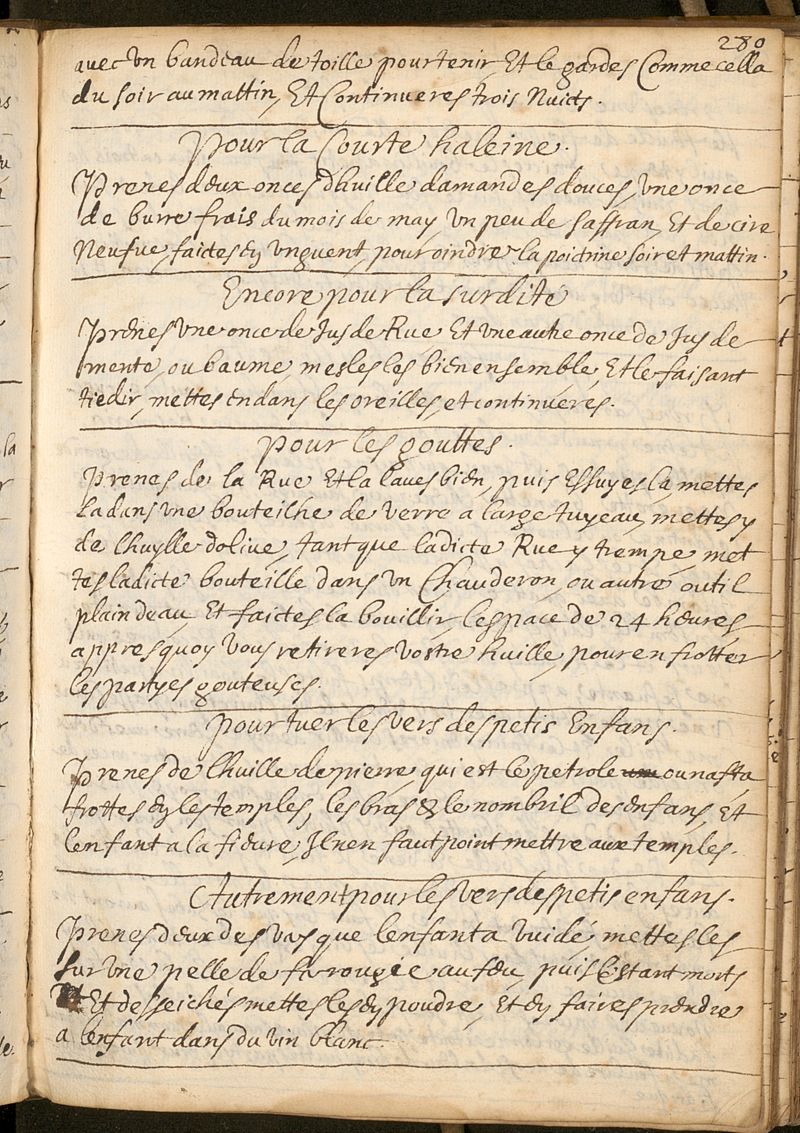 280
avec un bandeau de toille pour tenir, Et le gardes Comme cella
du soir au mattin, Et Continueres trois Nuicts.
Pour la Courte haleine.
Prenes deux onces dhuille damandes douces, une once
de burre frais du mois de may, un peu de saffran, Et de cire
Neufue, faictes en unguent, pour oindre la poictrine soir et mattin.
Encore pour la surdité
Prenes une once de Jus de Rue Et une autre once de Jus de
mente, ou baume, mesles les bien ensemble, Et le faisant
tiedir, mettes en dans les oreilles et continueres.
pour les gouttes.
Prenes de la Rue Et la laves bien, puis Essuyes la, mettes
la dans une bouteilhe de verre a large tuyeau, mettes y
de lhuylle dolive, tant que ladicte Rue y trempe, met
tes ladicte bouteille dans un Chauderon, ou autre outil
plain deau, Et faictes la bouillir, lespace de 24 heures
appres quoy vous retireres vostre huille, pour en frotter
les partyes gouteuses.
pour tuer les vers des petis Enfans.
Prenes de lhuille de pierre, qui est le petrole ou nafta
frottes en les temples, les bras & le nombril des enfans, Et
lenfant a la fievre, Il nen faut point mettre aux temples.
Autrement pour les vers des petis enfans.
Prenes deux des vers que lenfant a vuidé, mettes les
sur une pelle de fer rougie au feu, puis Estant morts
Et desseichés mettes les en poudre, Et en faires prendre
a lenfant dans du vin blanc.